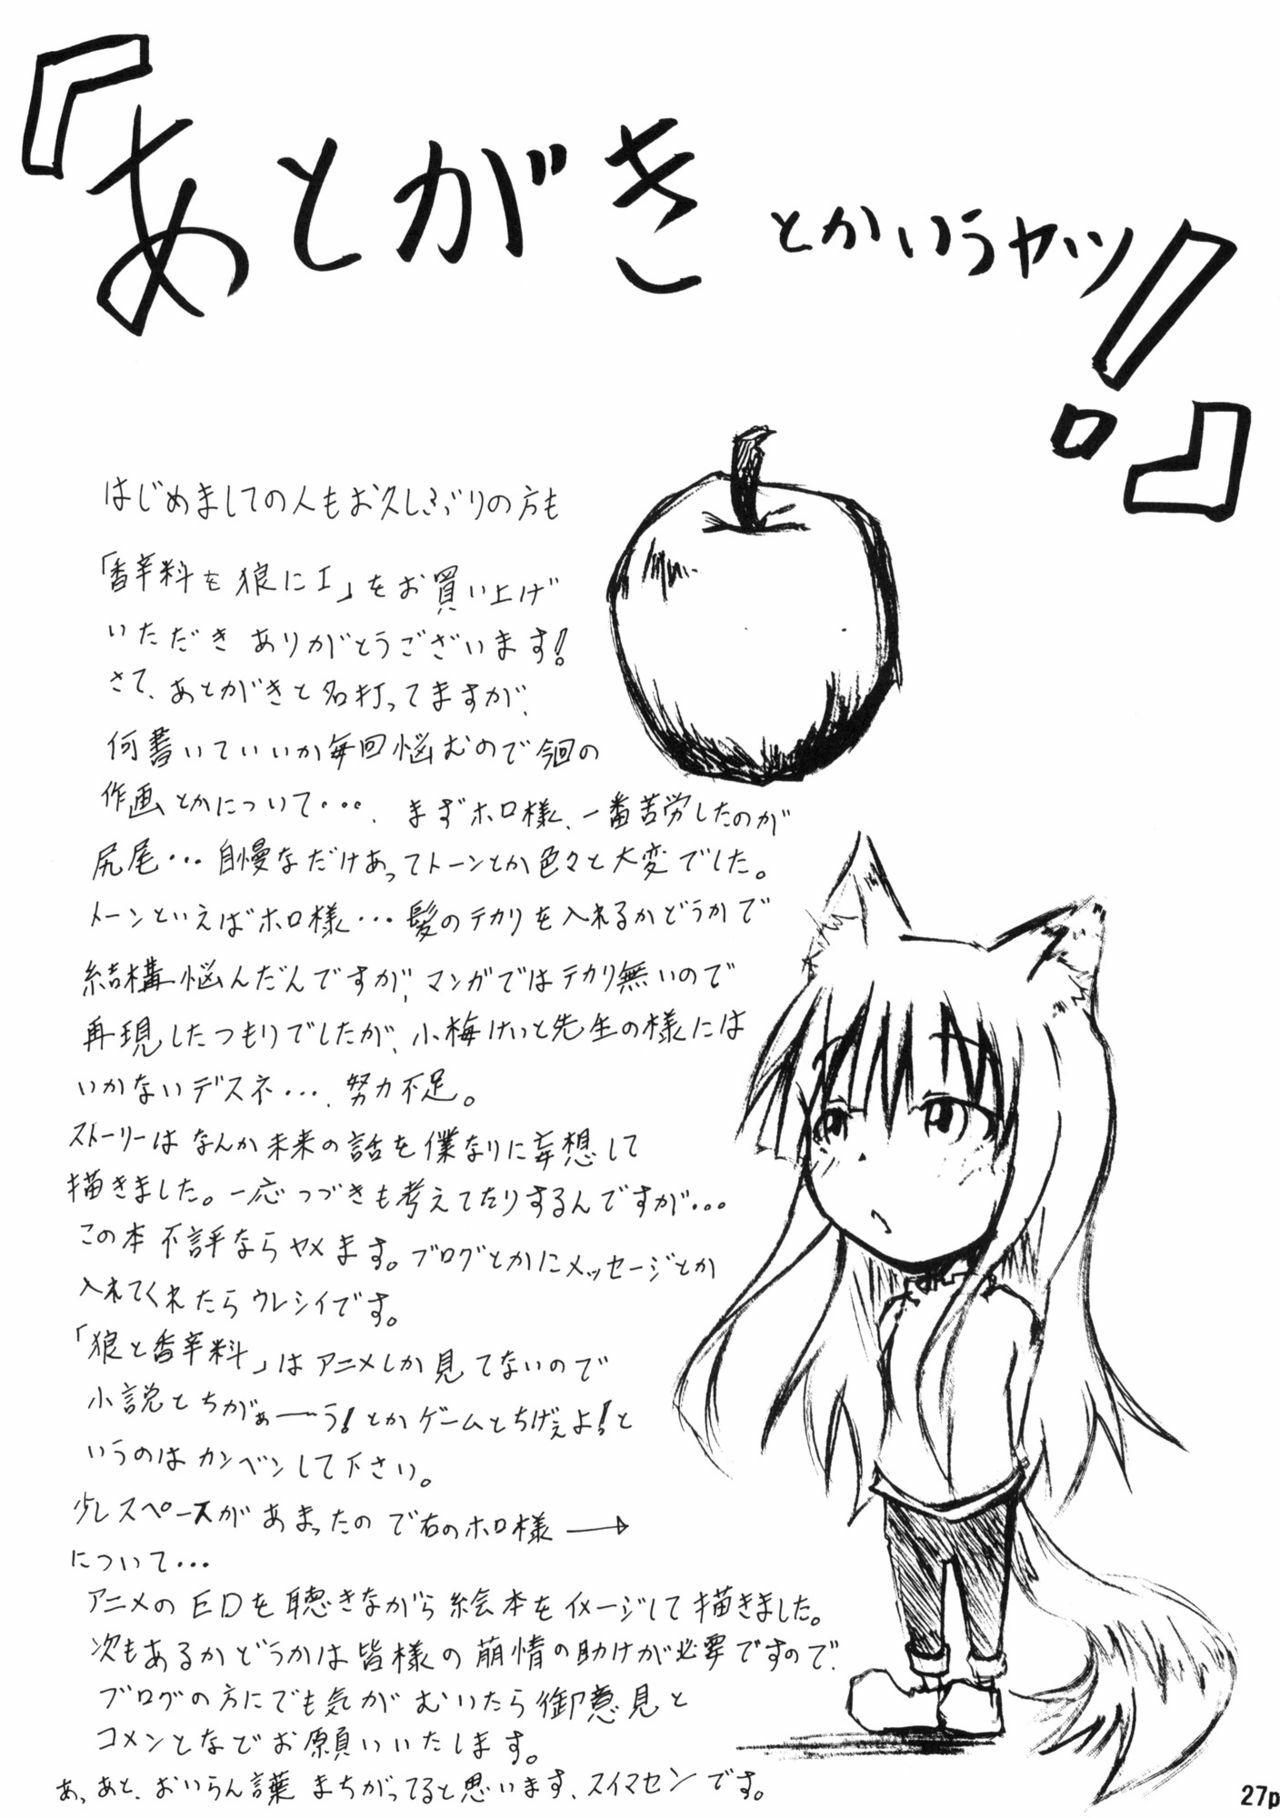 『あとがきとかいうヤツ!。』
はじめましての人もお久しぶりの方も
「香辛料を狼にI」をお買い上げ
いただきありがとうございます!
さて、あとがきと名打ってますが、
何書いていいか毎回悩むので今回の
作画とかについて・・・、まずホロ様、一番苦労したのが
尻尾・・・自慢なだけあってトーンとか色々と大変でした。
トーンといえばホロ様・・・髪のテカリを入れるかどうかで
結構悩んだんですが、マンガではテカリ無いので
再現したつもりでしたが、小梅けいと先生の様には
いかないデスネ・・・、努力不足。
ストーリーはなんか未来の話を僕なりに妄想して
描きました。一応つづきも考えてたりするんですが・・・
この本不評ならヤメます。ブログとかにメッセージとか
入れてくれたらウレシイです。
「狼と香辛料」はアニメしか見てないので
小説とちがぁーう!とかゲームとちげぇよ!と
いうのはカンベンして下さい。
少しスペースがあまったので右のホロ様→
について・・・
アニメのEDを聴きながら絵本をイメージして描きました。
次もあるかどうかは皆様の萌情の助けが必要ですので、
ブログの方にでも気がむいたら御意見と
コメンとなでお願いいたします。
あ、あと、おいらん言葉まちがってると思います、スイマセンです。
27p